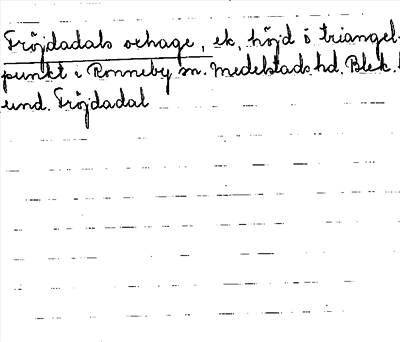 Fröjdadals oxhage, ek, höjd o triangel-
punkt i Ronneby sn. Medelstads hd. Blek.
und. Fröjdadal